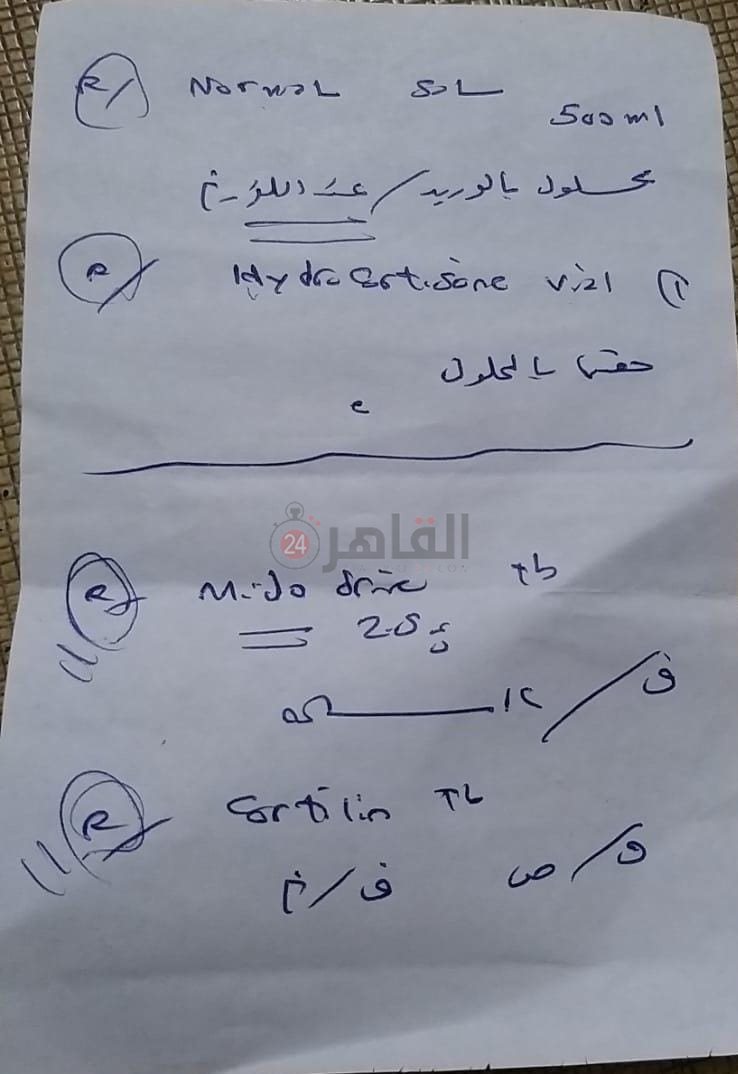 R/ Normal Sal
500 ml
محلول بالوريد / عند اللزوم
R/ Hydrocortisone vial (1
حقنها بالمحلول
القاهرة 24
R/ Midodrine Tb
2.5
١٢ / ق
R/ Cortilin Tb
ق / ص
ق / م